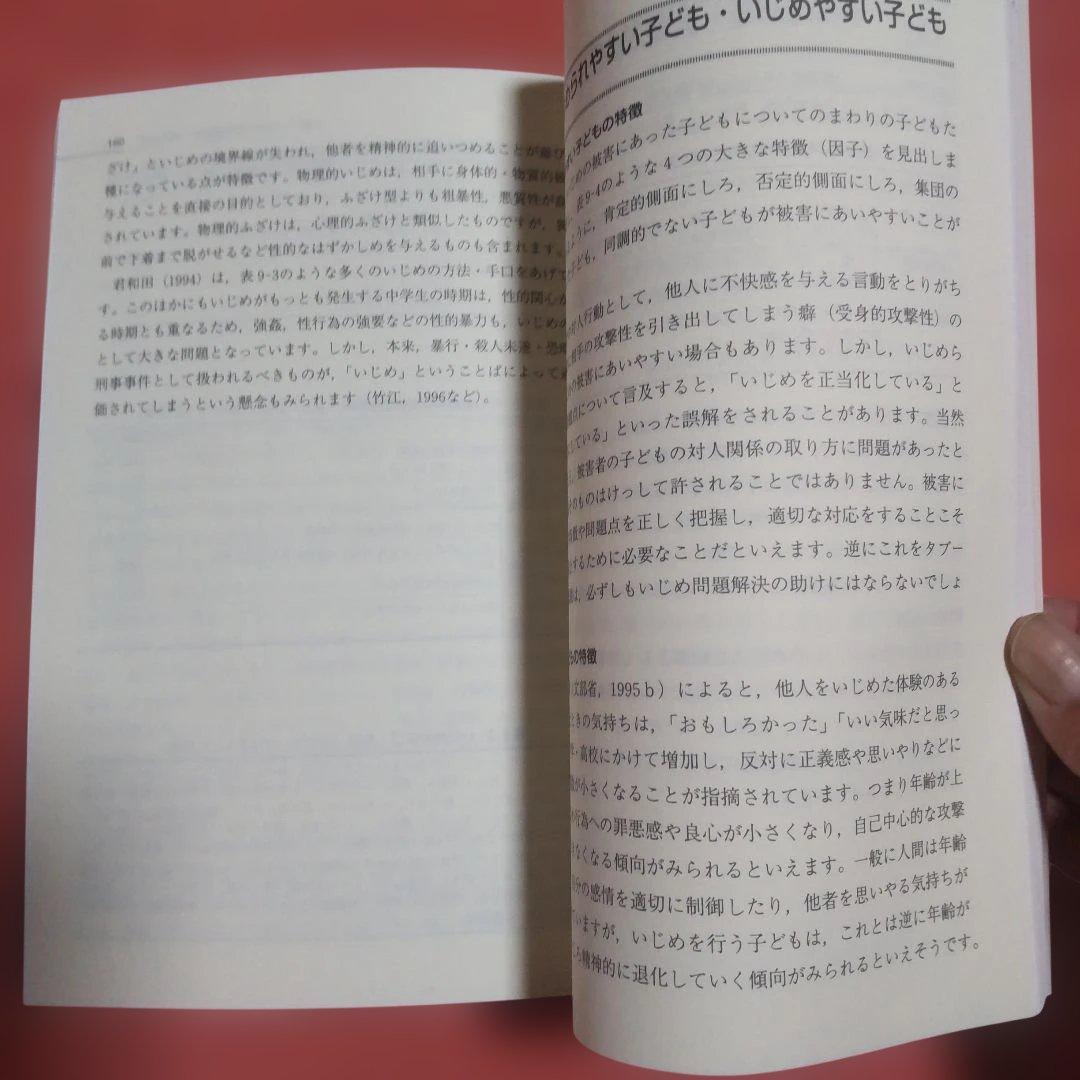 160
ざけ」といじめの境界線が失われ，他者を精神的に追いつめることが遊び
種になっている点が特徴です。物理的いじめは，相手に身体的・物質的被
与えることを直接の目的としており，ふざけ型よりも粗暴性，悪質性が
されています。物理的ふざけは，心理的ふざけと類似したものですが，
前で下着まで脱がせるなど性的なはずかしめを与えるものも含まれます。
君和田（1994）は，表9-3のような多くのいじめの方法・手口をあげて
す。このほかにもいじめがもっとも発生する中学生の時期は，性的関心が
る時期とも重なるため，強姦，性行為の強要などの性的暴力も，いじめの
として大きな問題となっています。しかし，本来，暴行・殺人未遂・恐喝
刑事事件として扱われるべきものが，「いじめ」ということばによって
価されてしまうという懸念もみられます（竹江，1996など）。
られやすい子ども・いじめやすい子ども
い子どもの特徴
めの被害にあった子どもについてのまわりの子どもた
，表9-4のような4つの大きな特徴（因子）を見出しま
ように，肯定的側面にしろ，否定的側面にしろ，集団の
子ども，同調的でない子どもが被害にあいやすいことが
対人行動として，他人に不快感を与える言動をとりがち
相手の攻撃性を引き出してしまう癖（受身的攻撃性）の
の被害にあいやすい場合もあります。しかし，いじめら
について言及すると，「いじめを正当化している」と
している」といった誤解をされることがあります。当然
，被害者の子どもの対人関係の取り方に問題があったと
のものはけっして許されることではありません。被害に
徴や問題点を正しく把握し，適切な対応をすることこそ
するために必要なことだといえます。逆にこれをタブー
は，必ずしもいじめ問題解決の助けにはならないでしょ
もの特徴
文部省，1995b）によると，他人をいじめた体験のある
ときの気持ちは，「おもしろかった」「いい気味だと思っ
・高校にかけて増加し，反対に正義感や思いやりなどに
が小さくなることが指摘されています。つまり年齢が上
行為への罪悪感や良心が小さくなり，自己中心的な攻撃
なくなる傾向がみられるといえます。一般に人間は年齢
分の感情を適切に制御したり，他者を思いやる気持ちが
いますが，いじめを行う子どもは，これとは逆に年齢が
ろ精神的に退化していく傾向がみられるといえそうです。